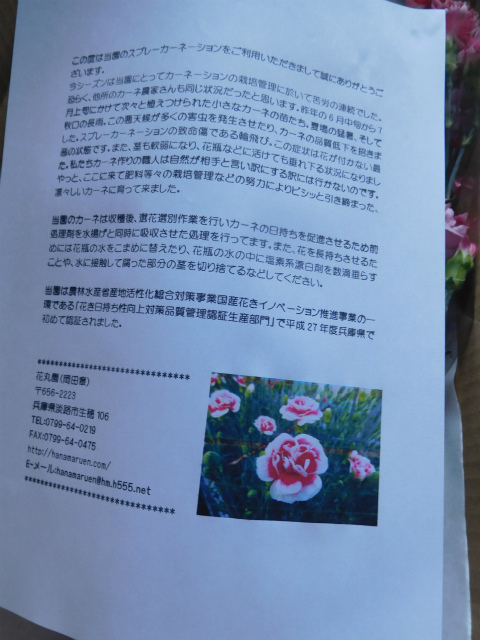 この度は当園のスプレーカーネーションをご利用いただきまして誠にありがとうご
ざいます。
今シーズンは当園にとってカーネーションの栽培管理に於いて苦労の連続でした。
恐らく、他所のカーネ農家さんも同じ状況だったと思います。昨年の6月中旬から7
月上旬にかけて次々と植えつけられた小さなカーネの苗たち。夏場の猛暑、そして
秋口の長雨。この悪天候が多くの害虫を発生させたり、カーネの品質低下を招きま
した。スプレーカーネーションの致命傷である輪飛び。この症状は花が付かない最
悪の状態です。また、茎も軟弱になり、花瓶などに活けても垂れ下る状況になりまし
た。私たちカーネ作りの職人は自然が相手と言い訳にする訳には行かないのです。
やっと、ここに来て肥料等々の栽培管理などの努力によりピシッと引き締まった、
凛々しいカーネに育って来ました。
当園のカーネは収穫後、選花選別作業を行いカーネの日持ちを促進させるため前
処理剤を水揚げと同時に吸収させた処理を行ってます。また、花を長持ちさせるた
めには花瓶の水をこまめに替えたり、花瓶の水の中に塩素系漂白剤を数滴垂らす
ことや、水に接触して腐った部分の茎を切り捨てるなどしてください。
当園は農林水産省産地活性化総合対策事業国産花きイノベーション推進事業の一
環である「花き日持ち性向上対策品質管理認証生産部門」で平成27年度兵庫県で
初めて認証されました。
*********************************
花丸園(岡田 )
〒656-2223
兵庫県淡路市生穂 106
TEL:0799-64-0219
FAX:0799-64-0475
http://hanamaruen.com/
E-メール:hanamaruen@hm.h555.net
*********************************